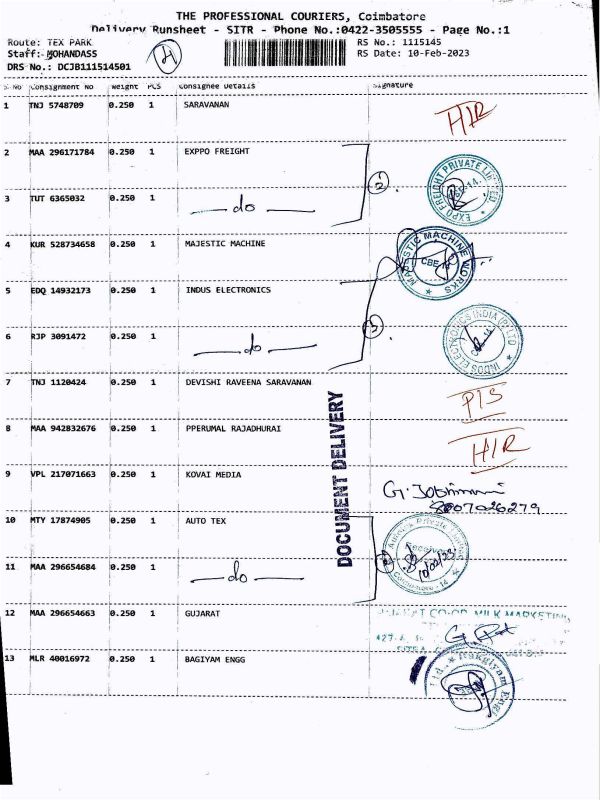 THE PROFESSIONAL COURIERS, Coimbatore
Delivery Runsheet - SITR - Phone No.:0422-3505555 - Page No.:1
Route: TEX PARK
RS No.: 1115145
Staff: MOHANDASS
RS Date: 10-Feb-2023
DRS No.: DCJB111514501
S No Consignment No Weight PCS Consignee Details Signature
1 TNJ 5748709 0.250 1 SARAVANAN H/R
2 MAA 296171784 0.250 1 EXPPO FREIGHT
EXPO FREIGHT PRIVATE LIMITED
3 TUT 6365032 0.250 1 — do —
4 KUR 528734658 0.250 1 MAJESTIC MACHINE
MAJESTIC MACHINE WORKS
CBE-14
5 EDQ 14932173 0.250 1 INDUS ELECTRONICS
INDUS ELECTRONICS INDIA (P) LTD
6 RJP 3091472 0.250 1 — do —
7 TNJ 1120424 0.250 1 DEVISHI RAVEENA SARAVANAN P/S
8 MAA 942832676 0.250 1 PPERUMAL RAJADHURAI H/R
DOCUMENT DELIVERY
9 VPL 217071663 0.250 1 KOVAI MEDIA
10 MTY 17874905 0.250 1 AUTO TEX
Received
10/02/23
Coimbatore - 14
11 MAA 296654684 0.250 1 — do —
12 MAA 296654663 0.250 1 GUJARAT
CO-OP. MILK MARKETING
13 MLR 40016972 0.250 1 BAGIYAM ENGG
Bagiyam Engg